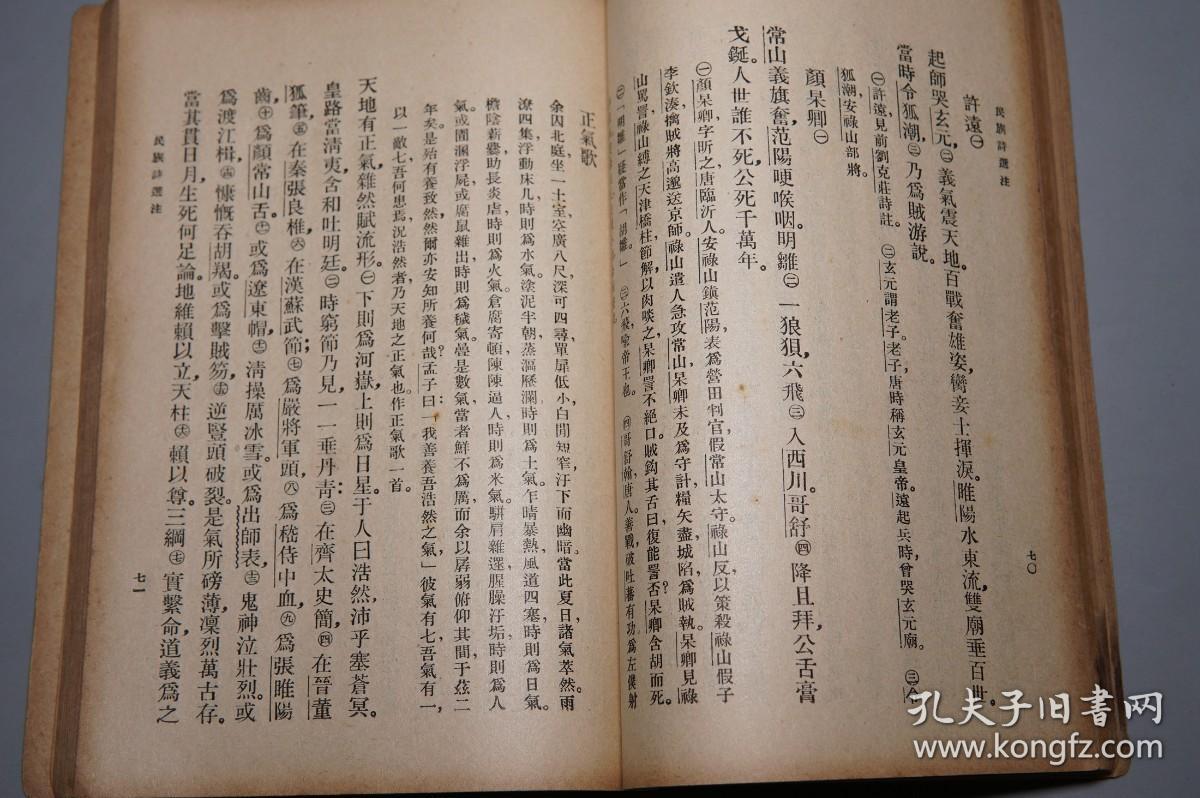 民族詩選注
七〇
許遠㊀
起師哭玄元,㊁義氣震天地。百戰奮雄姿,臠妾士揮淚。睢陽水東流,雙廟垂百世。
當時令狐潮,㊂乃爲賊游說。
㊀許遠見前劉克莊詩註。 ㊁玄元謂老子。老子唐時稱玄元皇帝。遠起兵時,曾哭玄元廟。 ㊂令
狐潮,安祿山部將。
顏杲卿㊀
常山義旗奮,范陽哽喉咽。明雛㊁一狼狽,六飛㊂入西川。哥舒㊃降且拜,公舌膏
戈鋋。人世誰不死,公死千萬年。
㊀顏杲卿字昕之,唐臨沂人。安祿山鎮范陽,表爲營田判官,假常山太守。祿山反,以策殺祿山假子
李欽湊,擒賊將高邈送京師。祿山遣人急攻常山,杲卿未及爲守計,糧矢盡,城陷,爲賊執。杲卿見祿
山罵詈,祿山縛之天津橋柱,節解以肉啖之,杲卿詈不絕口。賊鈎其舌曰:復能詈否?杲卿含胡而死。
㊁「明雛」疑當作「胡雛」。 ㊂六飛喻帝王也。 ㊃哥舒翰,唐人,善戰,破吐蕃有功,爲左僕射
正氣歌
余囚北庭,坐一土室,室廣八尺,深可四尋,單扉低小,白閒短窄,汙下而幽暗。當此夏日,諸氣萃然:雨
潦四集,浮動床几,時則爲水氣。塗泥半朝,蒸漚歷瀾,時則爲土氣。乍晴暴熱,風道四塞,時則爲日氣。
檐陰薪爨,助長炎虐,時則爲火氣。倉腐寄頓,陳陳逼人,時則爲米氣。駢肩雜遝,腥臊汙垢,時則爲人
氣。或圊溷,浮屍,或腐鼠,雜出,時則爲穢氣。疊是數氣,當者鮮不爲厲,而余以孱弱俯仰其間,于茲二
年矣。是殆有養致然,然爾亦安知所養何哉?孟子曰:「我善養吾浩然之氣」彼氣有七,吾氣有一,
以一敵七,吾何患焉。況浩然者,乃天地之正氣也。作正氣歌一首。
天地有正氣,雜然賦流形。㊀下則爲河嶽,上則爲日星。于人曰浩然,沛乎塞蒼冥。
皇路當清夷,含和吐明廷。㊁時窮節乃見,一一垂丹青:㊂在齊太史簡,㊃在晉董
狐筆,㊄在秦張良椎,㊅在漢蘇武節;㊆爲嚴將軍頭,㊇爲嵇侍中血,㊈爲張睢陽
齒,㊉爲顏常山舌。⑪或爲遼東帽,⑫清操厲冰雪。或爲出師表,⑬鬼神泣壯烈。或
爲渡江楫,⑭慷慨吞胡羯。或爲擊賊笏,⑮逆豎頭破裂。是氣所磅薄,凜烈萬古存。
當其貫日月,生死何足論。地維賴以立,天柱⑯賴以尊。三綱⑰實繫命,道義爲之
民族詩選注
七一
孔夫子旧书网
www.kongfz.com